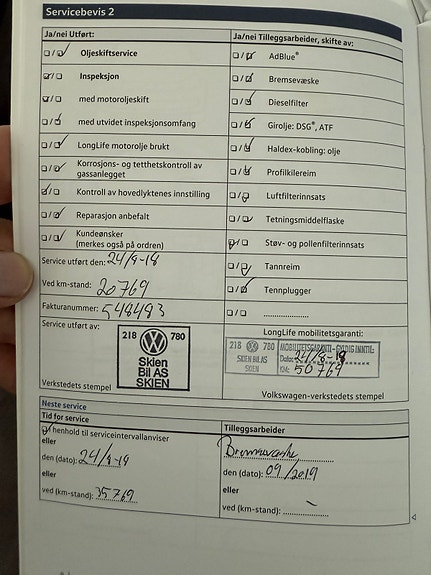 Servicebevis 2
Ja/nei Utført:
Oljeskiftservice
Inspeksjon
med motoroljeskift
med utvidet inspeksjonsomfang
LongLife motorolje brukt
Korrosjons- og tetthetskontroll av
gassanlegget
Kontroll av hovedlyktenes innstilling
Reparasjon anbefalt
Kundeønsker
(merkes også på ordren)
Service utført den: 24/8-18
Ved km-stand: 20769
Fakturanummer: 548483
Service utført av:
218 780
Skien
Bil AS
SKIEN
Verkstedets stempel
Ja/nei Tilleggsarbeider, skifte av:
AdBlue®
Bremsevæske
Dieselfilter
Girolje: DSG®, ATF
Haldex-kobling: olje
Profilkilereim
Luftfilterinnsats
Tetningsmiddelflaske
Støv- og pollenfilterinnsats
Tannreim
Tennplugger
LongLife mobilitetsgaranti:
218 780 MOBILITETSGARANTI - GYLDIG INNTIL:
SKIEN BIL AS
SKIEN
Dato: 24/8-
KM: 50769
Volkswagen-verkstedets stempel
Neste service
Tid for service
henhold til serviceintervallanviser
eller
den (dato): 24/8-
eller
ved (km-stand): 35769
Tilleggsarbeider
Bremsevæske
den (dato): 09/2019
eller
ved (km-stand):